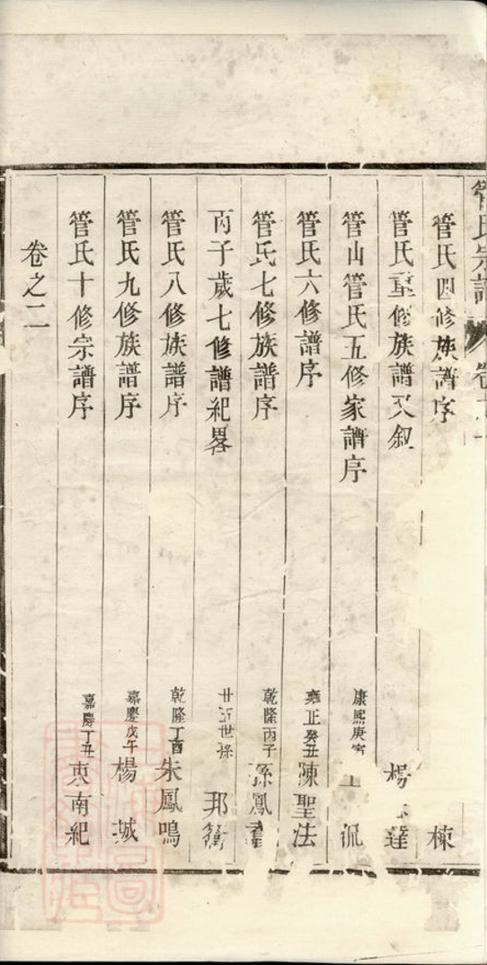 管氏宗譜 卷
管氏四修族譜序 棟
管氏重修族譜又叙 楊 達
管山管氏五修家譜序 康熙庚寅 侃
管氏六修譜序 雍正癸丑 陳聖法
管氏七修族譜序 乾隆丙子 孫鳳
丙子歲七修譜紀畧 廿五世孫 邦衡
管氏八修族譜序 乾隆丁酉 朱鳳鳴
管氏九修族譜序 嘉慶戊午 楊城
管氏十修宗譜序 嘉慶丁丑 南紀
卷之二